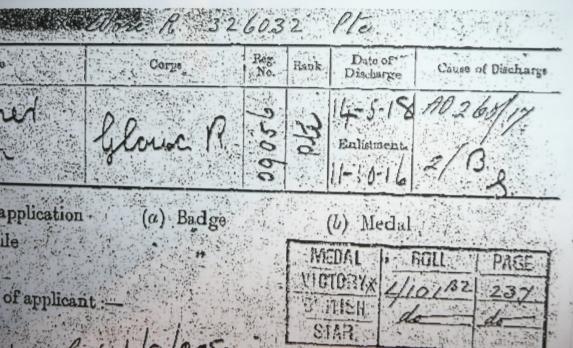 Worc R 326032 Pte
Corps Reg. No. Rank Date of Discharge Cause of Discharge
Glouc R. Pte 14-5-18 AO 265/17
Enlistment 2/B
11-10-16
application (a) Badge (b) Medal
" 
of applicant :—
MEDAL ROLL PAGE
VICTORY X 4/101 B2 237
BRITISH do do
STAR